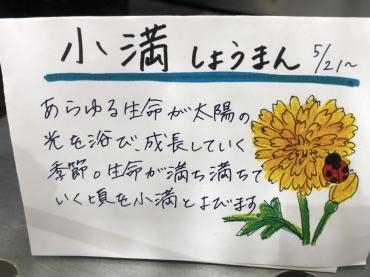 小満 しょうまん 5/21〜
あらゆる生命が太陽の
光を浴び、成長していく
季節。生命が満ち満ちて
いく頃を小満とよびます